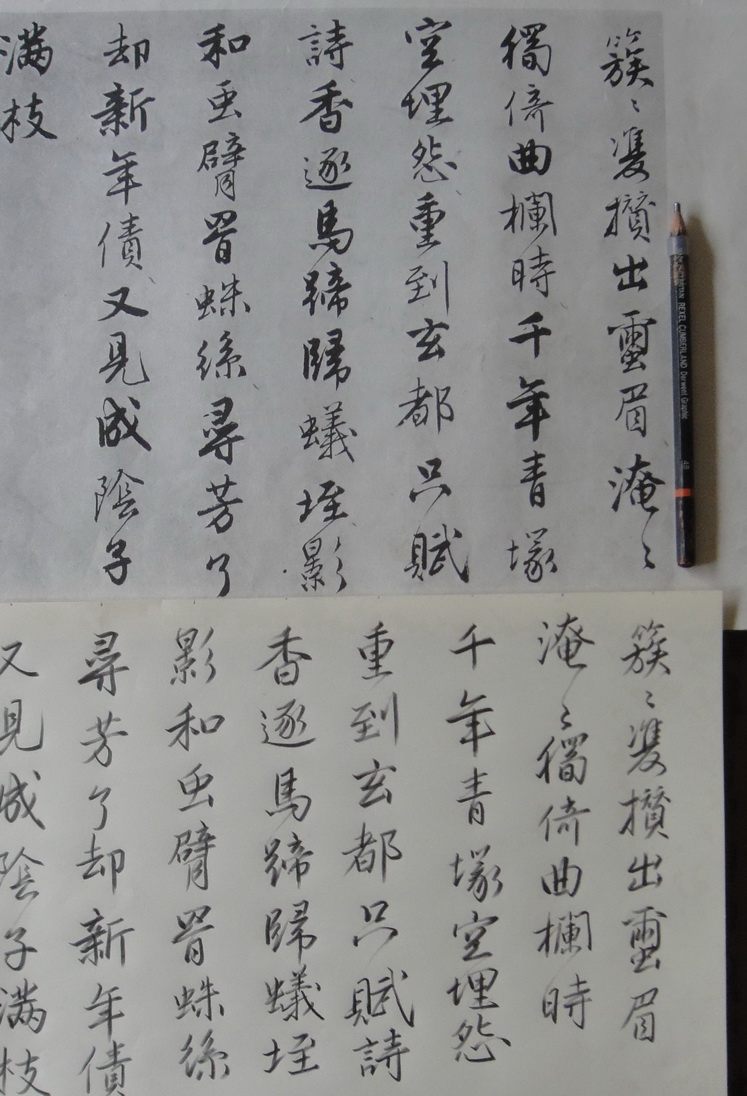 簇〻雙攢出靈眉淹〻
獨倚曲欄時千年青塚
空埋怨重到玄都只賦
詩香逐馬蹄歸蟻垤影
和虫臂罥蛛絲尋芳了
却新年債又見成陰子
满枝
簇〻雙攢出靈眉
淹〻獨倚曲欄時
千年青塚空埋怨
重到玄都只賦詩
香逐馬蹄歸蟻垤
影和虫臂罥蛛絲
尋芳了却新年債
又見成陰子满枝